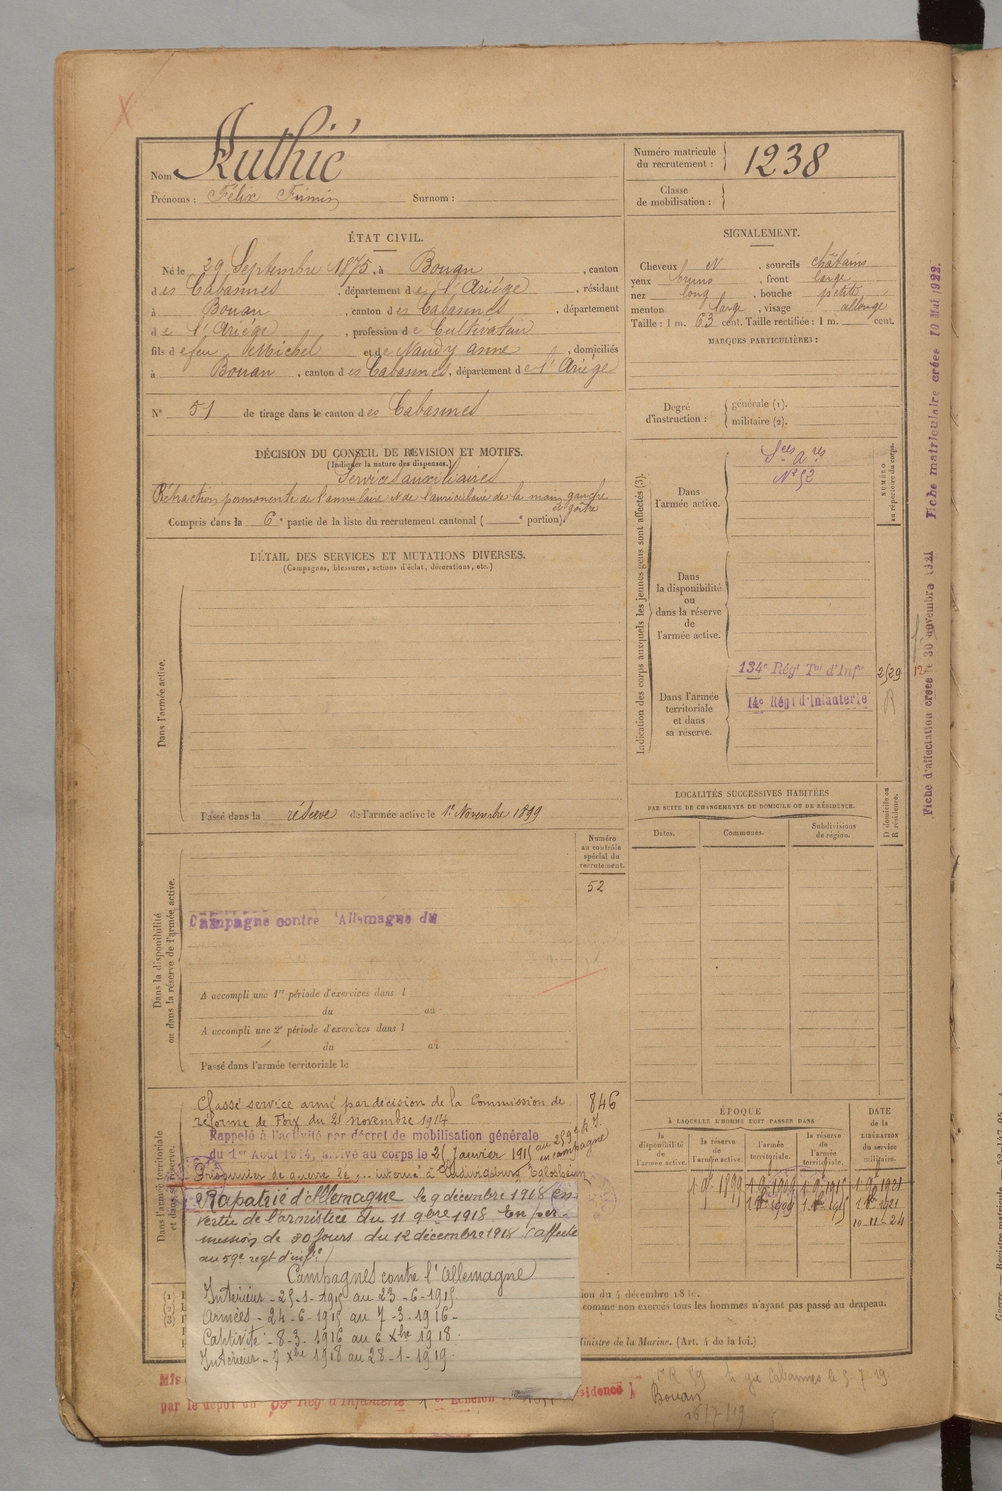 Nom Authié
Prénoms : Félix Firmin Surnom :
Numéro matricule du recrutement : 1238
Classe de mobilisation :
ÉTAT CIVIL.
Né le 29 Septembre 1875, à Bouan, canton
des Cabannes, département de l'Ariége, résidant
à Bouan, canton des Cabannes, département
de l'Ariége, profession de Cultivateur
fils de feu Michel et de Naudy Anne, domiciliés
à Bouan, canton des Cabannes, département de l'Ariége
N° 51 de tirage dans le canton des Cabannes
SIGNALEMENT.
Cheveux N, sourcils châtains
yeux bruns, front large
nez long, bouche petite
menton large, visage allongé
Taille : 1 m. 63 cent. Taille rectifiée : 1 m. cent.
MARQUES PARTICULIÈRES :
Degré d'instruction : générale (1). militaire (2).
DÉCISION DU CONSEIL DE REVISION ET MOTIFS.
(Indiquer la nature des dispenses.)
Services auxiliaires
Rétraction permanente de l'annulaire et de l'auriculaire de la main gauche
et goitre
Compris dans la 6e partie de la liste du recrutement cantonal ( e portion).
DÉTAIL DES SERVICES ET MUTATIONS DIVERSES.
(Campagnes, blessures, actions d'éclat, décorations, etc.)
Dans l'armée active.
Passé dans la réserve de l'armée active le 1er Novembre 1899
Indication des corps auxquels les jeunes gens sont affectés (3).
NUMÉRO au répertoire du corps.
Dans l'armée active.
Sces Ares
N° 52
Dans la disponibilité ou dans la réserve de l'armée active.
Dans l'armée territoriale et dans sa réserve.
134e Régt Tal d'Infie 2529
14e Régt d'Infanterie R
Fiche d'affectation créée le 30 novembre 1921 Fiche matriculaire créée 10 Mai 1922.
LOCALITÉS SUCCESSIVES HABITÉES
PAR SUITE DE CHANGEMENTS DE DOMICILE OU DE RÉSIDENCE.
D domicile ou R résidence.
Dates. Communes. Subdivisions de région.
Dans la disponibilité ou dans la réserve de l'armée active.
Numéro au contrôle spécial du recrutement.
52
Campagne contre l'Allemagne du
A accompli une 1re période d'exercices dans l
du au
A accompli une 2e période d'exercices dans l
du au
Passé dans l'armée territoriale le
Dans l'armée territoriale et dans sa réserve.
Classé service armé par décision de la Commission de 846
réforme de Foix du 21 novembre 1914
Rappelé à l'activité par décret de mobilisation générale
du 1er Août 1914, arrivé au corps le 25 Janvier 1915 au 259e R.I. en campagne
Prisonnier de guerre le ... interné à
Rapatrié d'Allemagne le 9 décembre 1918 en
vertu de l'armistice du 11 9bre 1918. En per-
mission de 30 jours du 12 décembre 1918 (affecté
au 59e regt d'infie)
Campagnes contre l'Allemagne
Intérieur - 25-1-1915 au 23-6-1915
Armées - 24-6-1915 au 7-3-1916-
Captivité - 8-3-1916 au 6 Xbre 1918.
Intérieur - 7 Xbre 1918 au 28-1-1919.
ÉPOQUE
À LAQUELLE L'HOMME DOIT PASSER DANS
DATE de la LIBÉRATION du service militaire.
la disponibilité de l'armée active. la réserve de l'armée active. l'armée territoriale. la réserve de l'armée territoriale.
1 9bre 1899 1 9 1909 1 9 1915 1 9 1921
1 9bre 1909 1 9bre 1915 1 9bre 1921
10-11-24
ion du 4 décembre 18
comme non exercés tous les hommes n'ayant pas passé au drapeau.
inistre de la Marine. (Art. 4 de la loi.)
Mis
par le dépôt du 59e Rég d'Infanterie 1er Echelon
Bouan
16/7/19